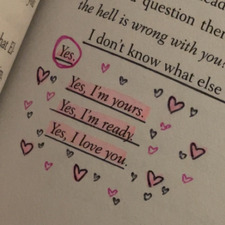 question then
the hell is wrong with you?
Yes. I don't know what else
Yes, I'm yours.
Yes, I'm ready.
Yes, I love you.